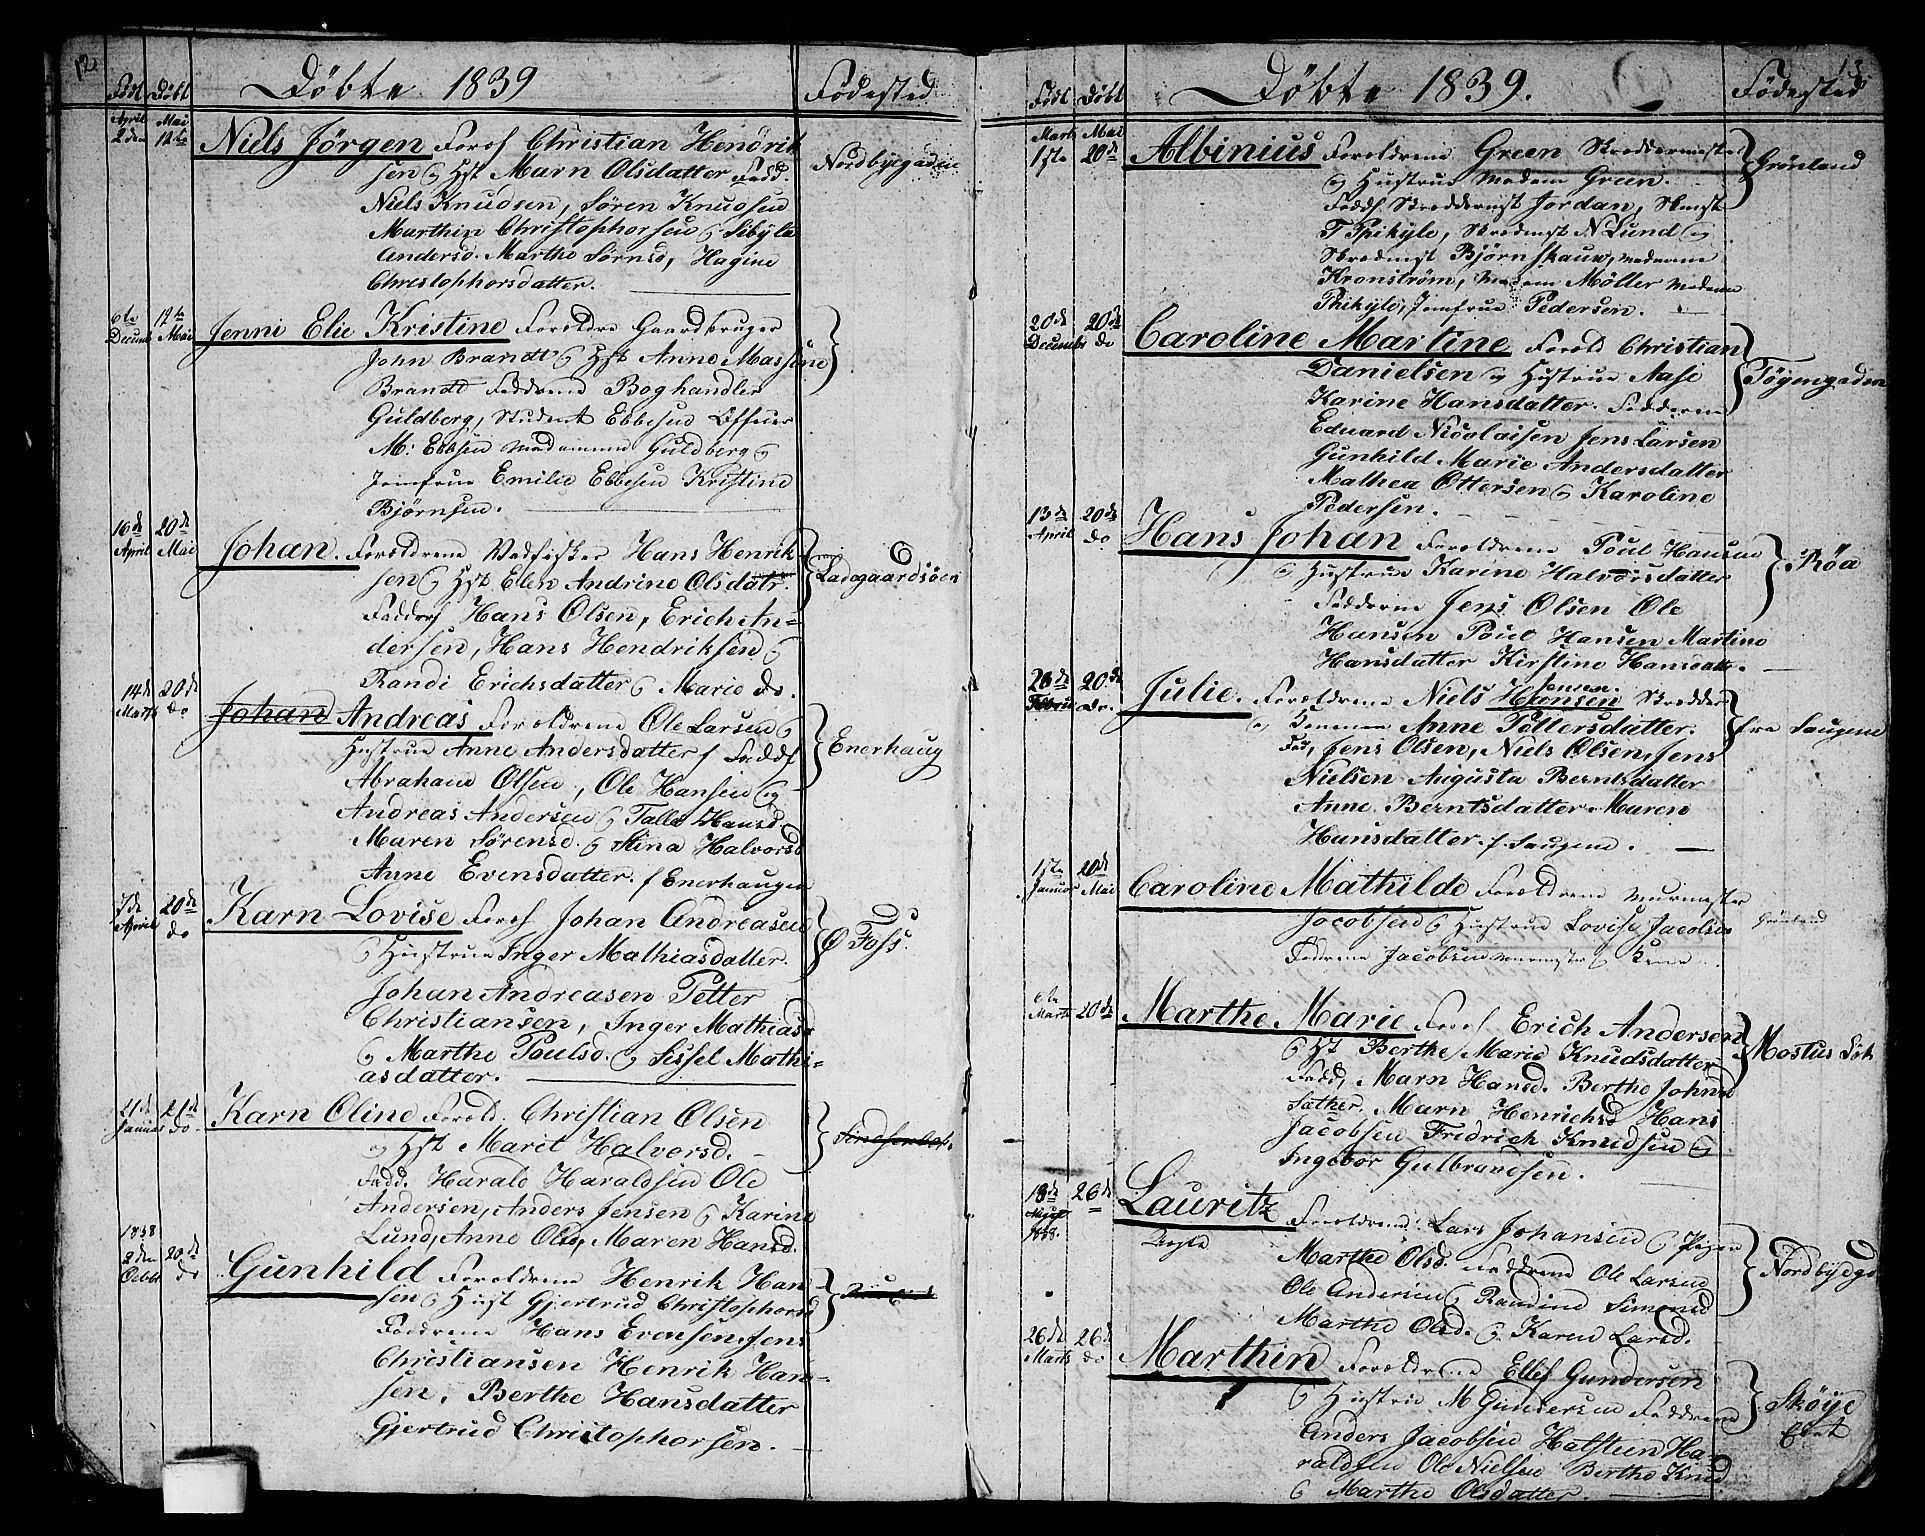 12
Födt Döbt Döbte 1839 Födested
April 2den Mai 12te Niels Jörgen Foref Christian Hendrik
sen og Hst Marn Olsdatter Fadd. Nordbyegaden
Niels Knudsen, Sören Knudsen
Marthin Christophorsen og Sibyla
Andersd. Marthe Sörnsd, Hagine
Christophorsdatter.
6te Decemb 12te Mai Jenni Elie Kristine Foreldre Gaardbruger
John Brandt og Hst Anne Massine
Brandt Faddrene Boghandler
Guldberg, Student Ebbesen Officier
M: Ebbsen Madammen Guldberg og
Jomfrue Emilie Ebbesen Kristine
Björnsen.
16de April 20de Mai Johan. Foreldrene Hans Henrik
sen og Hst Elen Andrine Olsdatr. Ladegaardsöen
Faddref Hans Olsen, Erich An-
dersen, Hans Hendriksen og
Randi Erichsdatter og Marie do.
14de Marts 20de do Johan Andreas Foreldrene Ole Larsen og
Hustrue Anne Andersdatter f Faddf Enerhaug
Abraham Olsen, Ole Hansen og
Andreas Andersen og Talle Hansd
Maren Sörensd. og Stina Halvorsd
Anne Evensdatter. f Enerhaugen
7de April 20de do Karn Lovise Foref Johan Andreasen
og Hustrue Inger Mathiasdatter. Ø Foss.
Johan Andreasen Petter
Christiansen, Inger Mathiasd
og Marthe Poulsd. og Sissel Mathi-
asdatter.
21de Januar 21de do. Karn Oline Foreld. Christian Olsen
og Hst Marit Halvorsd.
Fadd. Harald Haraldsen Ole
Andersen, Anders Jensen og Karine
Lund, Anne Olsd, Maren Hansd.
1838 2den Octbr 20de do Gunhild Foreldrene Henrik Han
sen og Hust Gjertrud Christophorsd
Faddrene Hans Evensen Jens
Christiansen Henrik Han-
sen, Berthe Hansdatter
Gjertrud Christophorsen.
13.
Födt Döbt Döbte 1839. Födested
Marts 1ste Mai 20de Albinius Foreldrene Green Skreddermester
og Hustrue Madam Green. Grönland
Faddf Skreddermst Jordan, Skmst
T Spikyle, Skredmst N Lund og
Skredmst Björnskauw, Madame
Kronström, Madam Möller Madame
Spikyle, Jomfrue Pedersen.
20de Decemb 20de do Caroline Martine Foreld Christian
Danielsen og Hustrue Aase Töyengaden
Karine Hansdatter. Fadderne
Eduard Nicolaisen Jens Larsen
Gunhild Marie Andersdatter
Mathea Ottersen og Karoline
Pedersen.
13de April 20de do Hans Johan Foreldrene Poul Hansen
og Hustrue Karine Halvorsdatter Röa
Fadderne Jens Olsen Ole
Hansen Poul Hansen Martine
Hansdatter Kirstine Hansdattr.
Jensen.
20de do. Julie. Foreldrene Niels Hansen Skredder
og Anne Pettersdatter. fra Saugene
Fad, Jens Olsen, Niels Olsen, Jens
Nielsen Augusta Berntsdatter
Anne Berntsdatter Maren
Hansdatter. f Saugene.
1ste Januar 20de Mai Caroline Mathilde Foreldrene Murmester
Jacobsen og Hustrue Lovise Jacobsen Grönland
Fadderne Jacobsen Murmester og Kone
6te Marts 20de Marthe Marie Foref Erich Andersen
og Hst Berthe Marie Knudsdatter
Fadd, Marn Hansd. Berthe Johns
datter. Marn Henrichsd Hans
Jacobsen Fridrich Knudsen og
Ingebor Gulbrandsen.
18de August 1838. 26de Lauritz Foreldrene Lars Johansen og Pigen
Uægte Marthe Olsd. Faddrene Ole Larsen Nordbyegd
Ole Andersen og Randine Simensd
Marthe Olsd. og Karen Larsd.
26de Marts 26de do Marthin Foreldrene Ellef Gundersen
og Hustrue M Gundersen Faddrene Sköye
Anders Jacobsen Halsten Ha-
raldsen Ole Nielsen Berthe Knud
og Marthe Olsdatter.